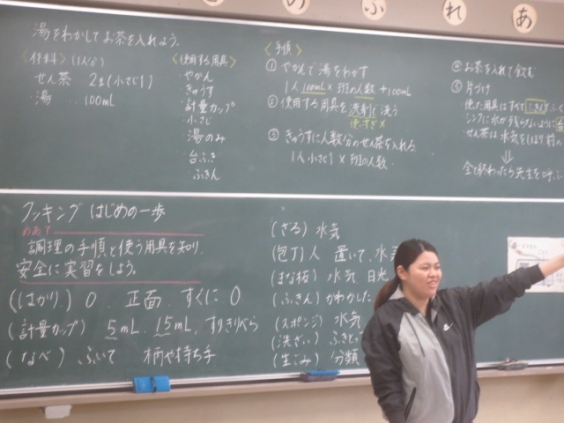 の ふ れ あ
湯をわかしてお茶を入れよう。
〈材料〉(1人分)
せん茶 2g(小さじ1)
湯 100mL
〈使用する用具〉
やかん
きゅうす
計量カップ
小さじ
湯のみ
台ふき
ふきん
〈手順〉
① やかんで湯をわかす
1人100mL×班の人数+100mL
② 使用する用具を洗剤で洗う
③ きゅうすに人数分のせん茶を入れる
1人小さじ1×班の人数
④ お茶を入れて飲む
⑤ 片づけ
使た用具はすべて
シンクに水が残らないように
せん茶は水気をしぼり
⇓
全て終わったら先生を呼
クッキング はじめの一歩
めあて
調理の手順と使う用具を知り、
安全に実習をしよう。
(はかり) 0 正面 すぐに0
(計量カップ) 5mL、15mL、すりきりべら
(なべ) ふいて 柄や持ち手
(ざる) 水気
(包丁) 置いて、水
(まな板) 水気 日光
(ふきん) かわかした
(スポンジ) 水気
(洗ざい) ふきと
(生ごみ) 分類